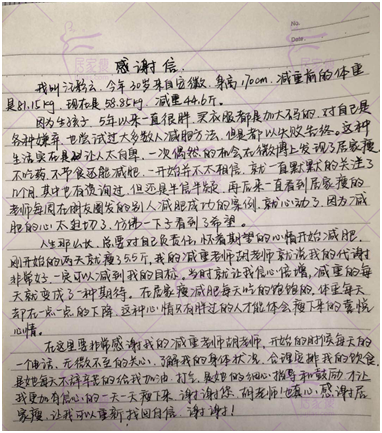 No.
Date
居家瘦
感谢信.
我叫江彩云、今年30岁来自安徽, 身高170cm, 减重前的体重
是81.15kg, 现在是58.85kg, 减重44.6斤。
因为生孩子, 5年以来一直很胖, 买衣服都是加大码的, 对自己是
各种嫌弃, 也尝试过大多数人减肥方法, 但是都以失败告终。这种
生活实在是让人太自卑、一次偶然的机会在微博上发现了居家瘦,
不吃药、不节食还能减肥, 一开始并不太相信, 就一直默默的关注了
几个月, 其中也有资询过, 但还是半信半疑, 再后来一直看到居家瘦的
老师每周在朋友圈发的别人减肥成功的案例, 就心动了, 因为减
肥的心太迫切了, 仿佛一下子看到了希望。
人生那么长, 总要对自己负责任, 怀着期望的心情开始减肥,
刚开始的两天就瘦了5.5斤, 我的减重老师胡老师就说我的代谢
非常好, 一定可以减到我的目标。当时就让我信心倍增, 减重的每
天就变成了一种期待。在居家瘦减肥每天吃的饱饱的, 体重每天
却在一点一点的下降, 这种心情只有胖过的人才能体会瘦下来的喜悦
心情。
在这里要非常感谢我的减重老师胡老师, 开始的时候每天的
一个电话, 无微不至的关心, 了解我的身体状况, 合理安排我的饮食,
是她每天不辞辛苦的给我加油, 打气, 是她的细心指导和鼓励, 才让
我更加有信心的一天一天瘦下来, 谢谢您, 胡老师! 也衷心感谢居
家瘦, 让我可以重新找回自信, 谢谢!